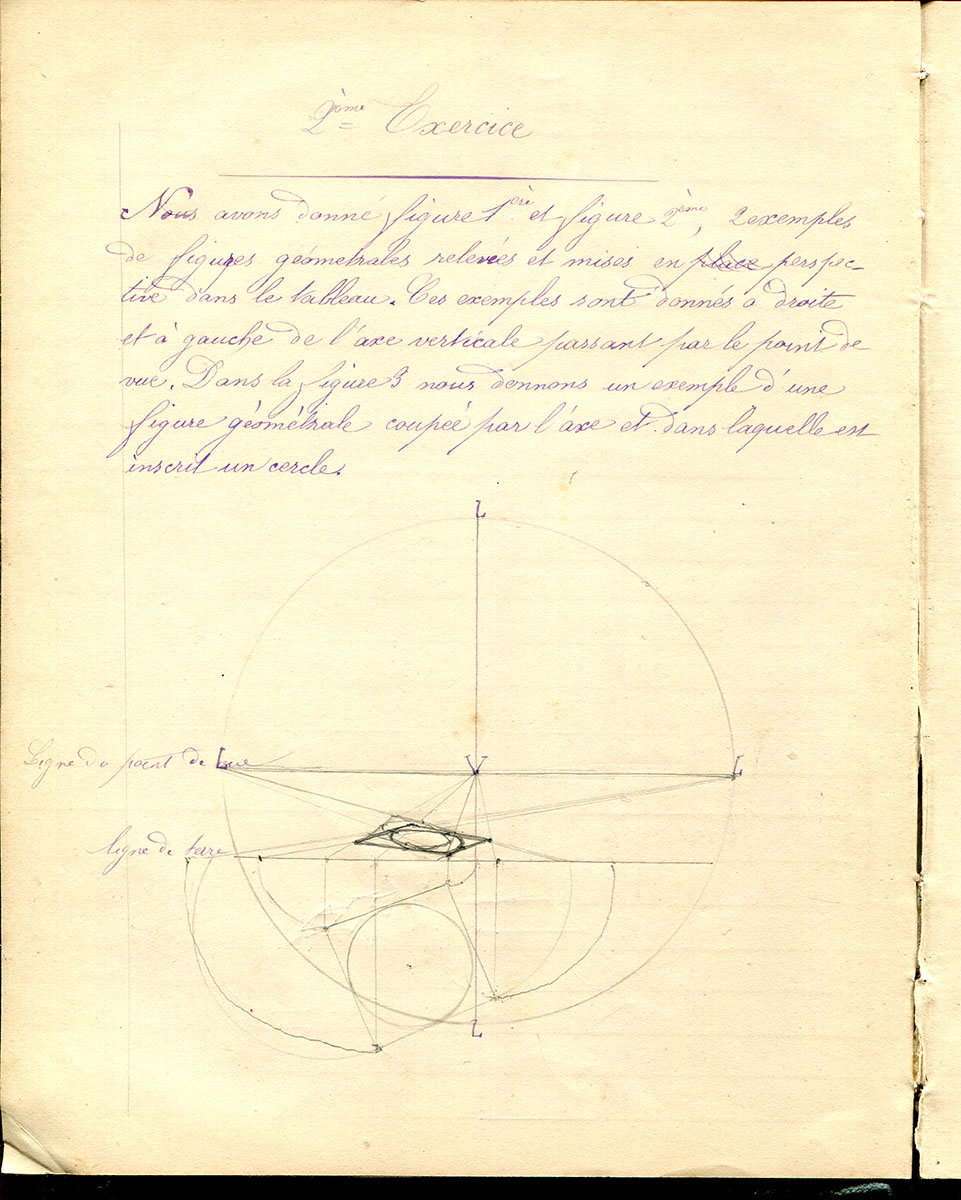 2ème Exercice
Nous avons donné figure 1ère et figure 2ème, 2 exemples
de figures géometrales relevées et mises en place perspec-
tive dans le tableau. Ces exemples sont donnés a droite
et à gauche de l'áxe verticale passant par le point de
vue. Dans la figure 3 nous donnons un exemple d'une
figure géométrale coupée par l'áxe et dans laquelle est
inscrit un cercle.
L
Ligne du point de vue
L
V
L
ligne de terre
L